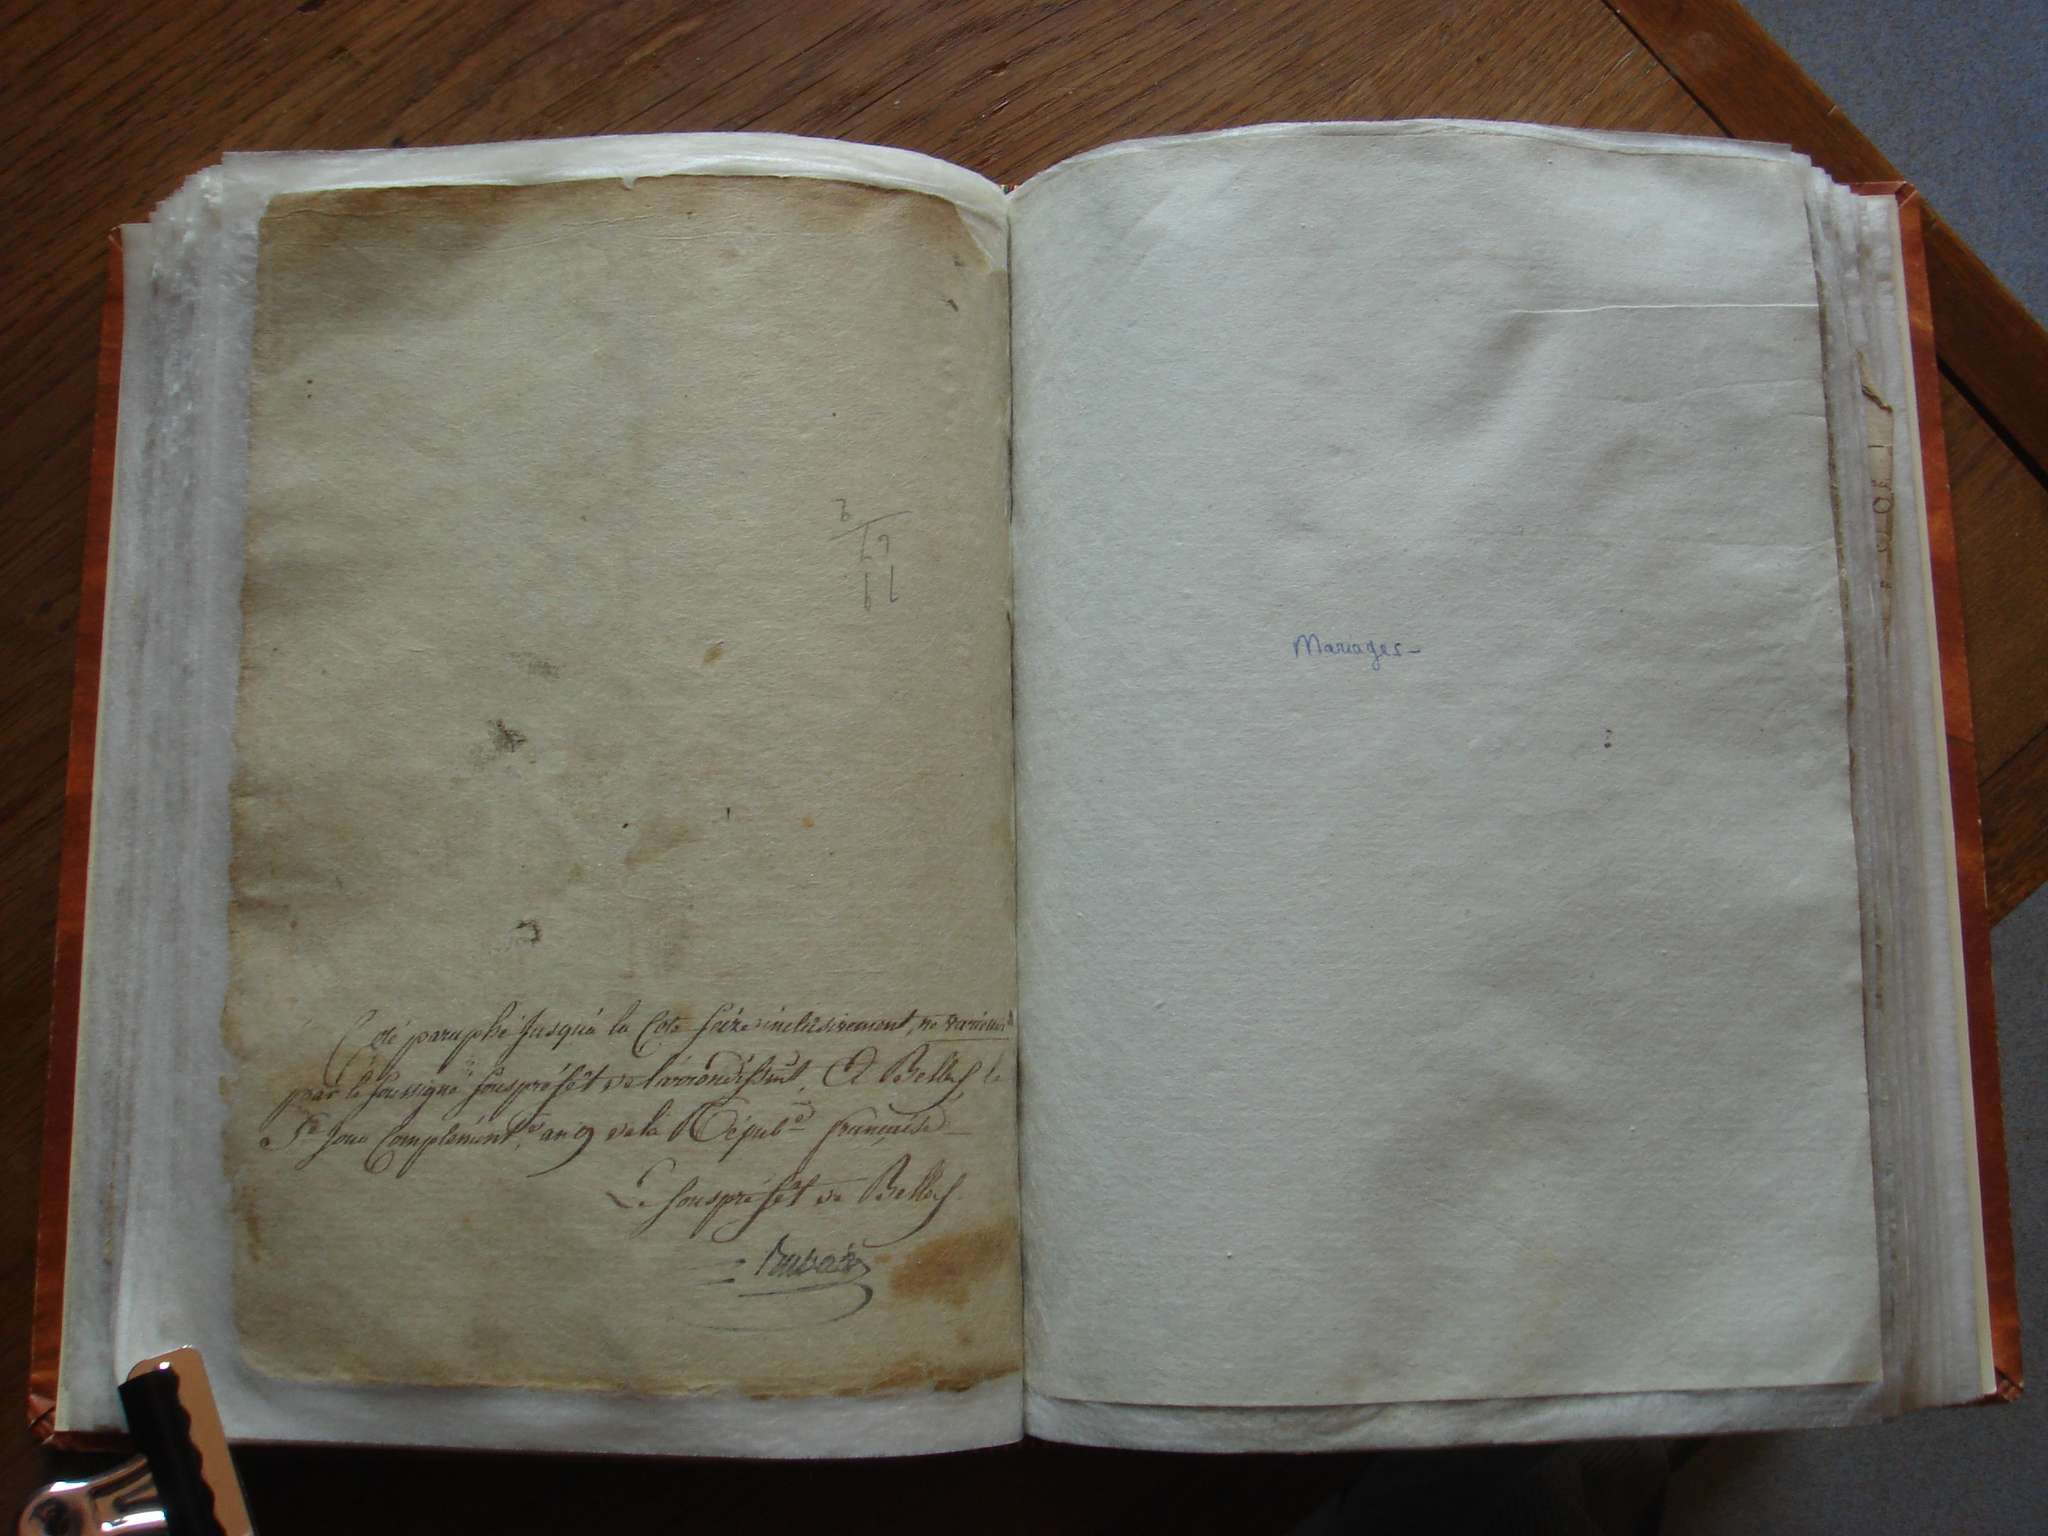 Coté paraphé jusqu'a la Cote seize inclusivement, ne varietur
par le soussigné souspréfêt de l'arrondissmt, A Bellay le
5e jour Complément.re an 9 de la Répub.e française
Le souspréfêt de Bellay
Mariages